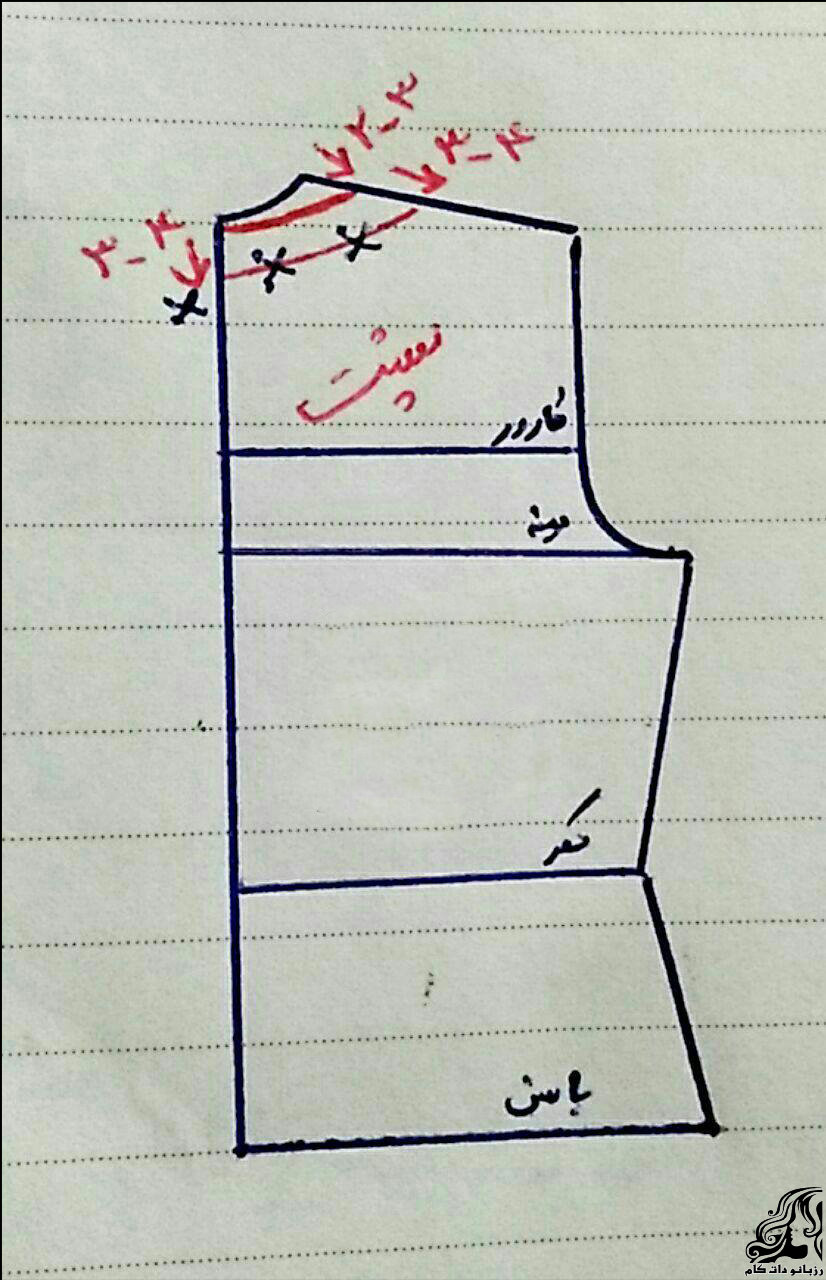 ۲-۳
۳-۴
۳-۴
پشت
کارور
سینه
کمر
باسن
رزبانو دات کام